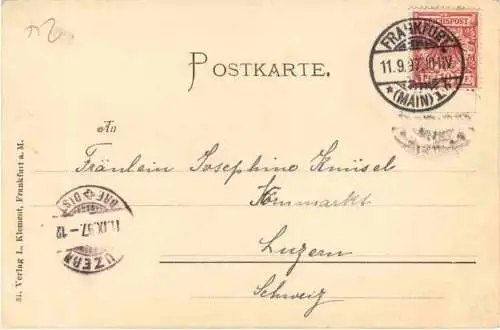 REICHSPOST
FRANKFURT
11.9.97. 10-11V.
* (MAIN) 1.
POSTKARTE.
An
Fräulein Josephine Knüsel
Kornmarkt
Luzern
Schweiz
LUZERN
11.IX.97.-12
BRF. DIS
31. Verlag L. Klement, Frankfurt a. M.